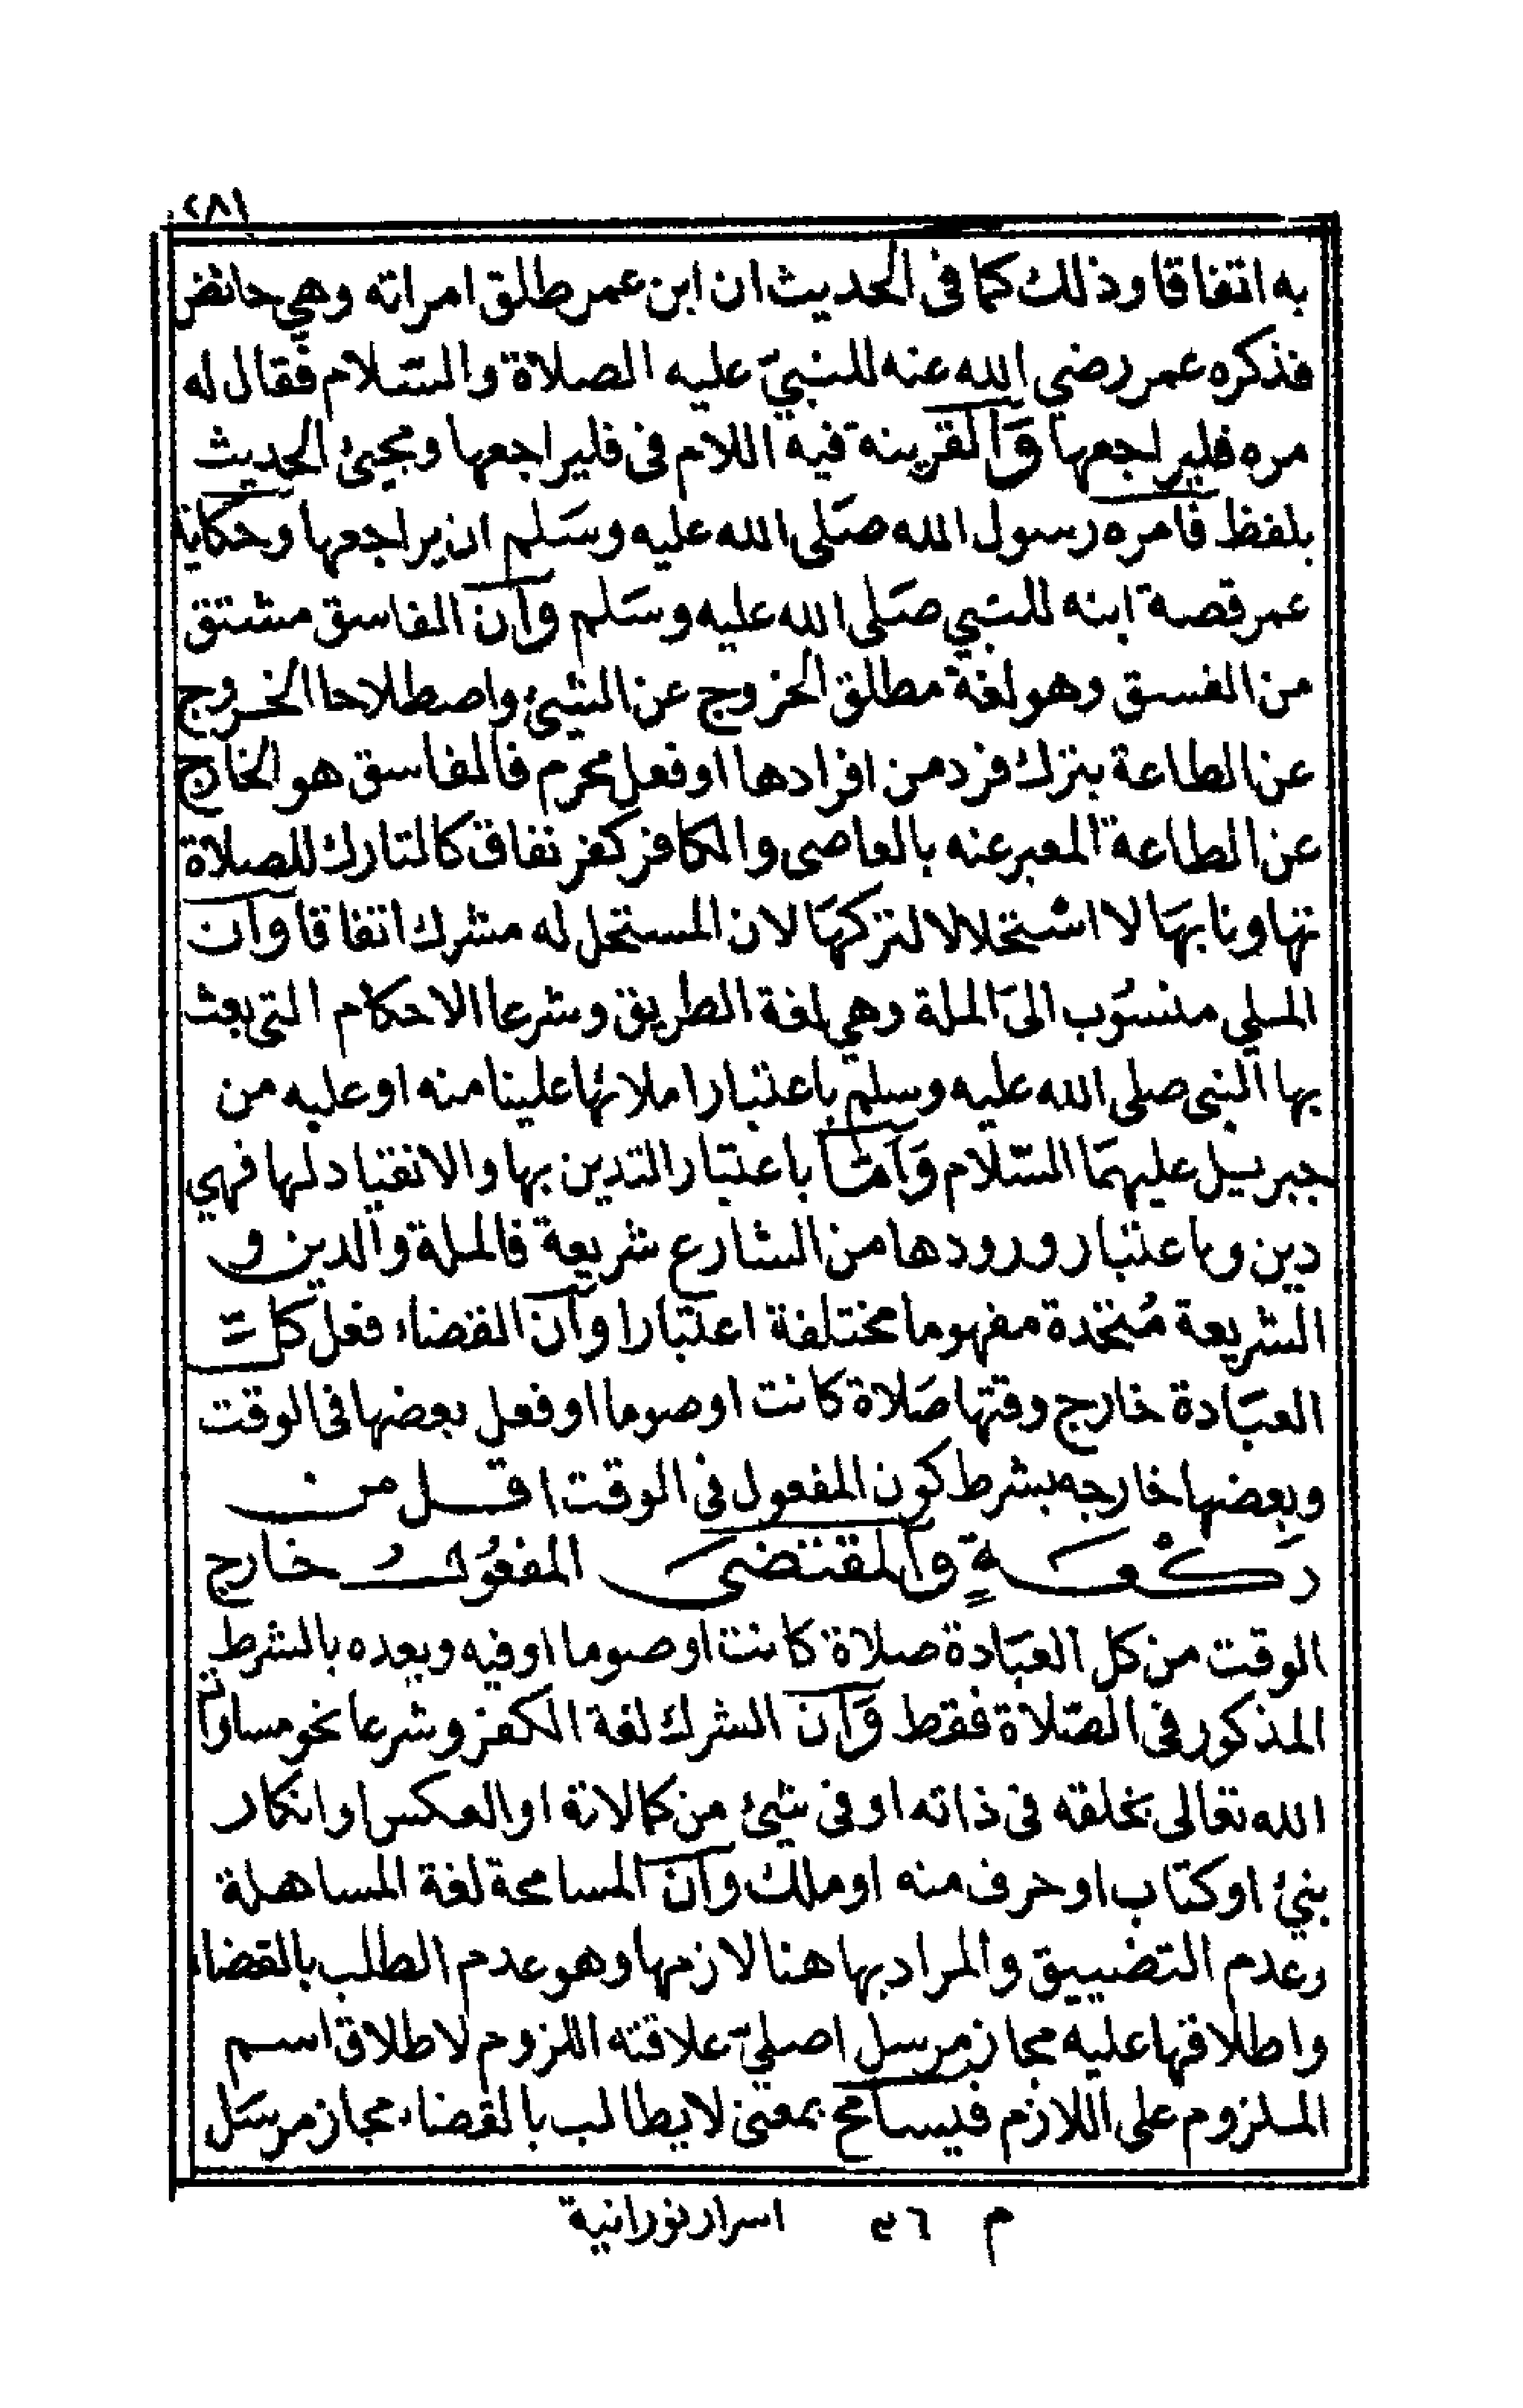 ٢٨١
به اتفاقا وذلك كما فى الحديث ان ابن عمر طلق امراته وهي حائض
فذكره عمر رضي الله عنه للنبيّ عليه الصلاة والسّلام فقال له
مره فليراجعها وَالقرينة فيه اللام فى فليراجعها ومجيئ الحديث
بلفظ فامره رسول الله صَلى الله عليه وسَلم ان يراجعها وحكاية
عمر قصة ابنه للنبي صَلى الله عليه وسَلم وان الفاسق مشتق
من الفسق وهو لغة مطلق الخروج عن الشيئ واصطلاحا الخروج
عن الطاعة بترك فرد من افرادها او فعل محرم فالفاسق هو الخارج
عن الطاعة المعبر عنه بالعاصى والكافر كفر نفاق كالتارك للصلاة
تهاونا بهَا لا اسْتحلالا لتركهَا لان المستحل له مشرك اتفاقا وان
الملي منسوُب الىَ الملة وهي لغة الطريق وشرعا الاحكام التى بعث
بها النبى صلى الله عليه وسلم باعتبار املائها علينا منه او عليه من
جبريل عليهمَا السّلام وَامّا باعتبار التدين بها والانقياد لها فهي
دين وباعتبار ورودها من الشارع شريعة فالملة والدين و
الشريعة مُتحدة مفهوما مختلفة اعتبارا وان القضاء فعل كلّ
العبَادة خارج وقتها صَلاة كانت او صوما او فعل بعضها فى الوقت
وبعضها خارجه بشرط كون المفعول فى الوقت اقل من
رَكْعَةٍ والمقتضىَ المفعُول خارج
الوقت من كل العبَادة صلاة كانت او صوما او فيه وبعده بالشرط
المذكور فى الصّلاة فقط وَان الشرك لغة الكفر وشرعا نحو مساواة
الله تعالى بخلقه فى ذاته او فى شيئ من كمالاته او العكس او انكار
نبيّ او كتاب او حرف منه او ملك وان المسامحة لغة المساهلة
وعدم التضييق والمراد بها هنا لازمها وهو عدم الطلب بالقضاء
واطلاقها عليه مجاز مرسل اصليّ علاقته اللزوم لاطلاق اسم
الملزوم على اللازم فيسامح بمعنى لا يطالب بالقضاء مجاز مرسَل
م ٣٦ اسرار نورانية